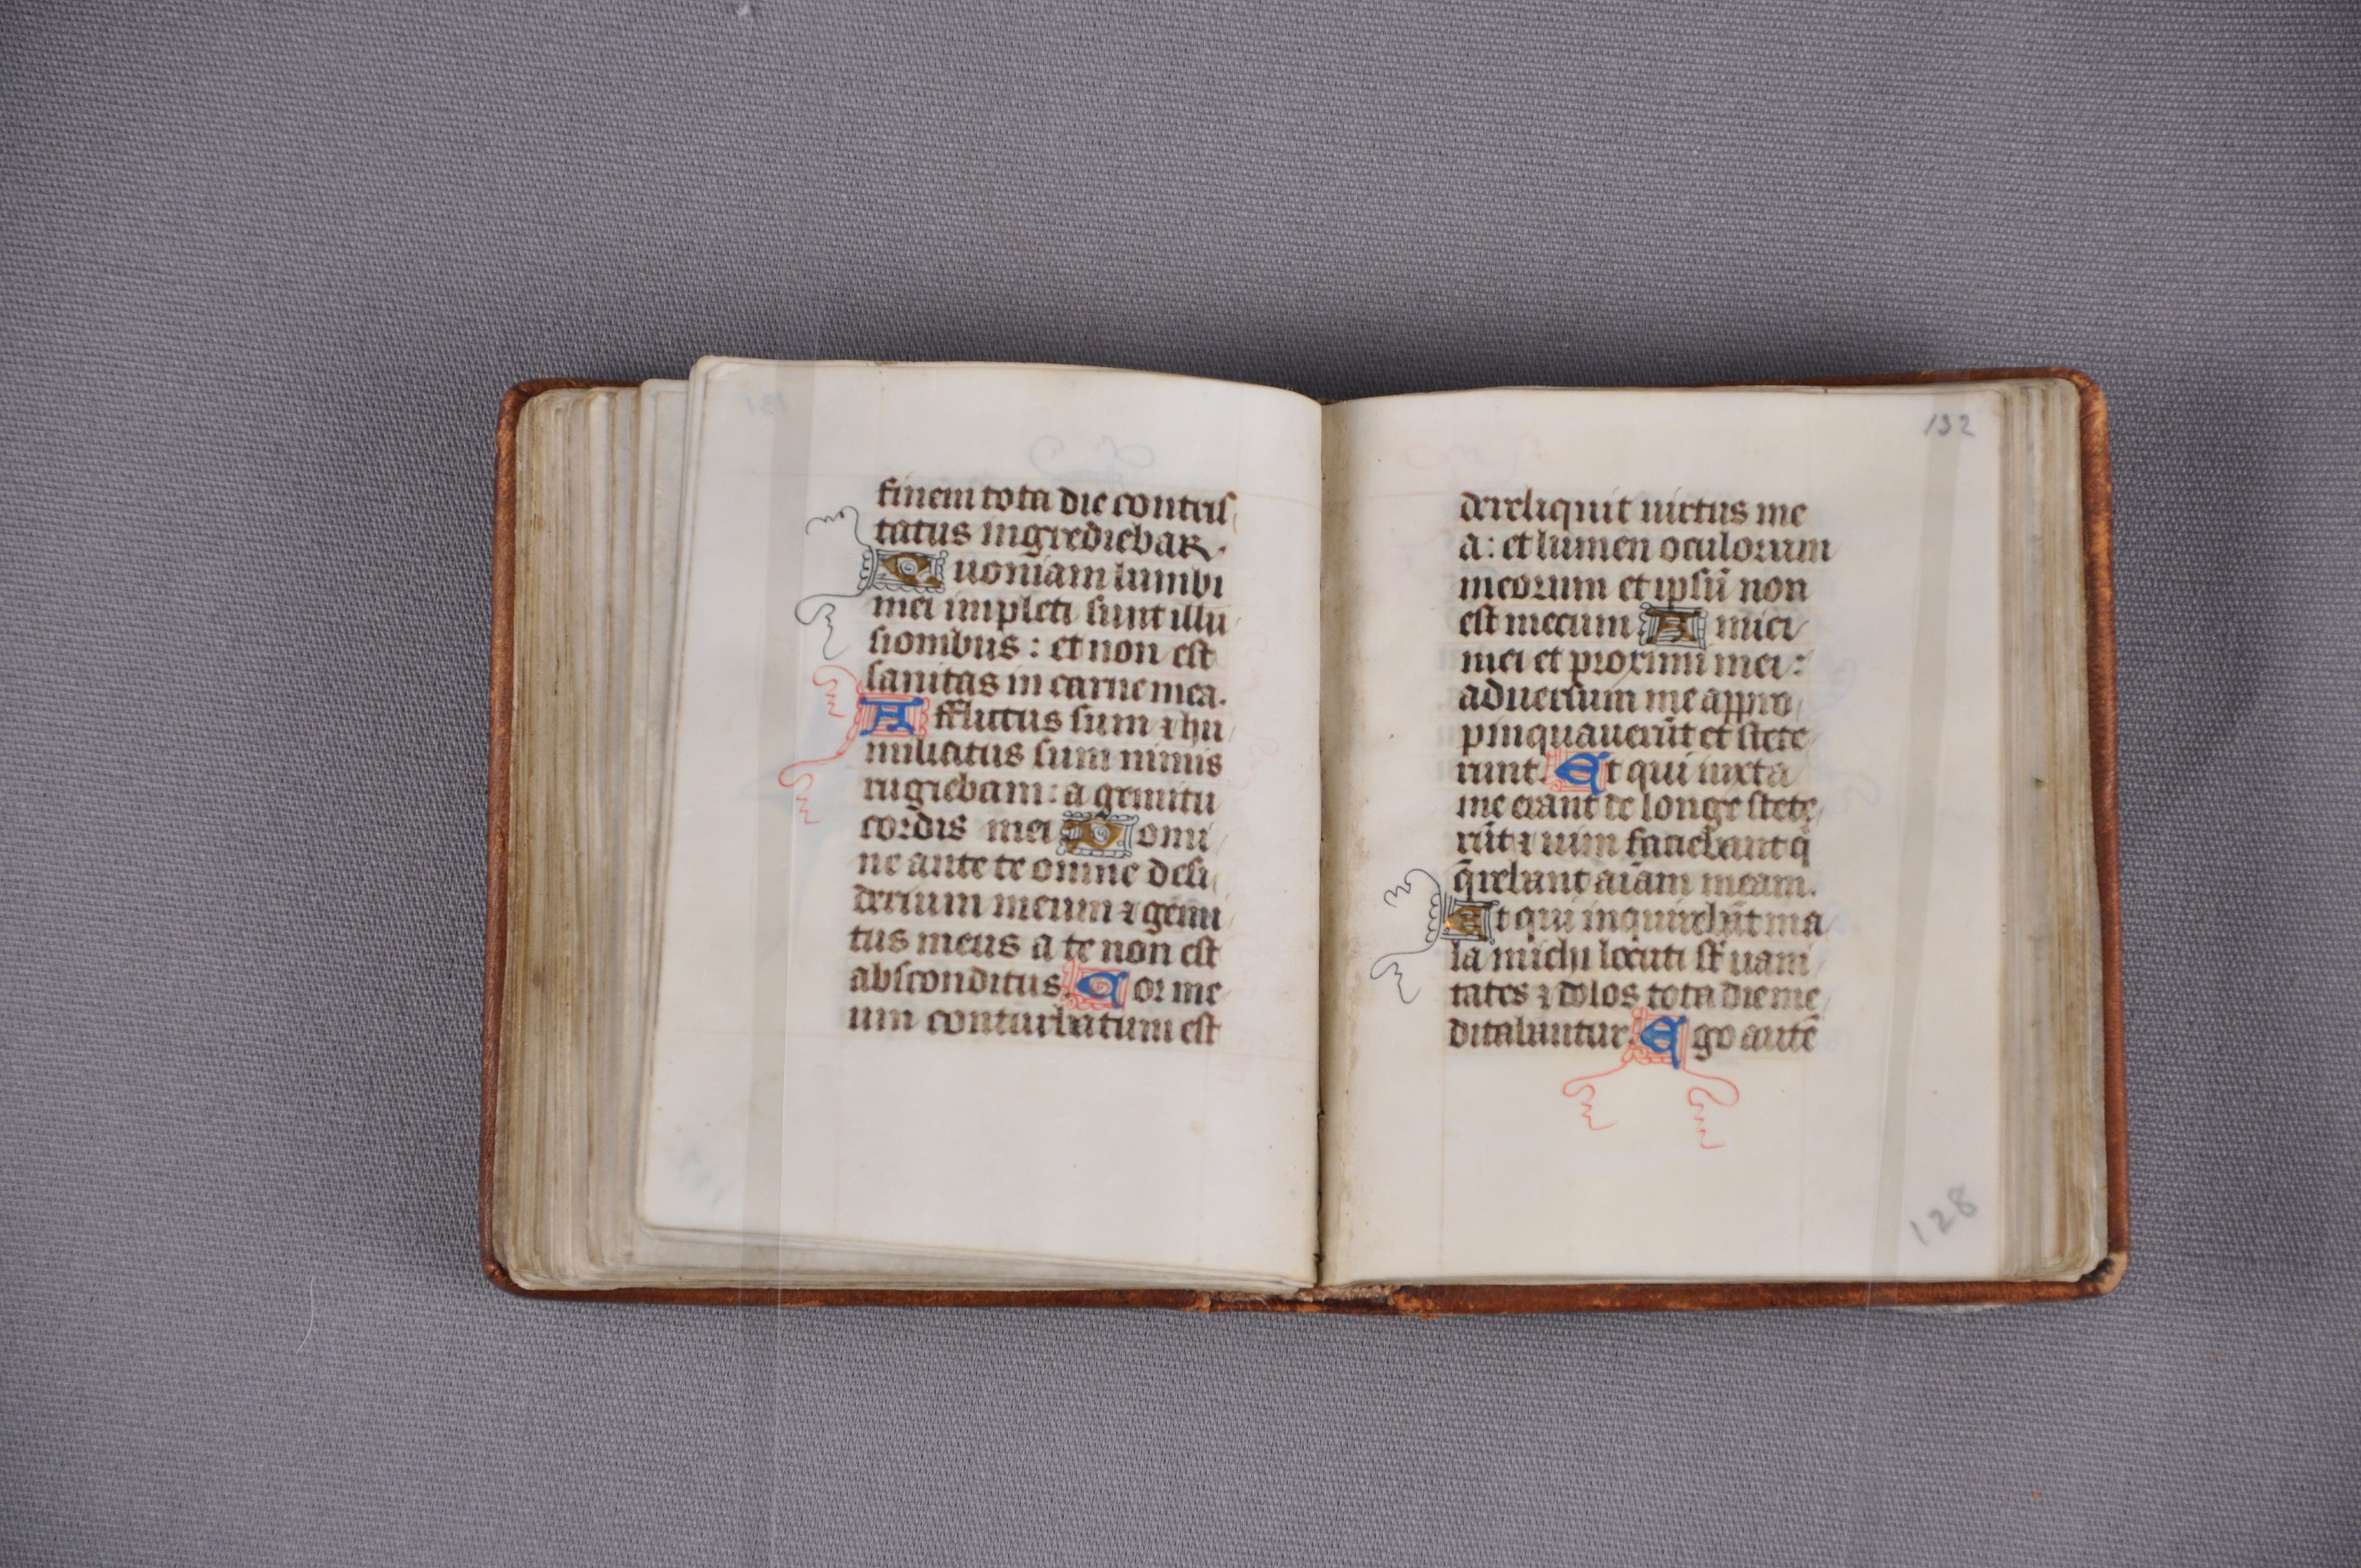 finem tota die contris
tatus ingrediebar.
Quoniam lumbi
mei impleti sunt illu
sionibus : et non est
sanitas in carne mea.
Afflictus sum ⁊ hu
miliatus sum nimis
rugiebam : a gemitu
cordis mei Domi
ne ante te omne desi
derium meum ⁊ gemi
tus meus a te non est
absconditus. Cor me
um conturbatum est
132
dereliquit uirtus me
a : et lumen oculorum
meorum et ipsū non
est mecum Amici
mei et proximi mei :
aduersum me appro
pinquauerūt et stete
runt. Et qui iuxta
me erant de longe stete
rūt ⁊ uim faciebant q̄
q̄rebant aīam meam.
Et qui inquirebāt ma
la michi locuti sūt uani
tates ⁊ dolos tota die me
ditabantur. Ego autē
128